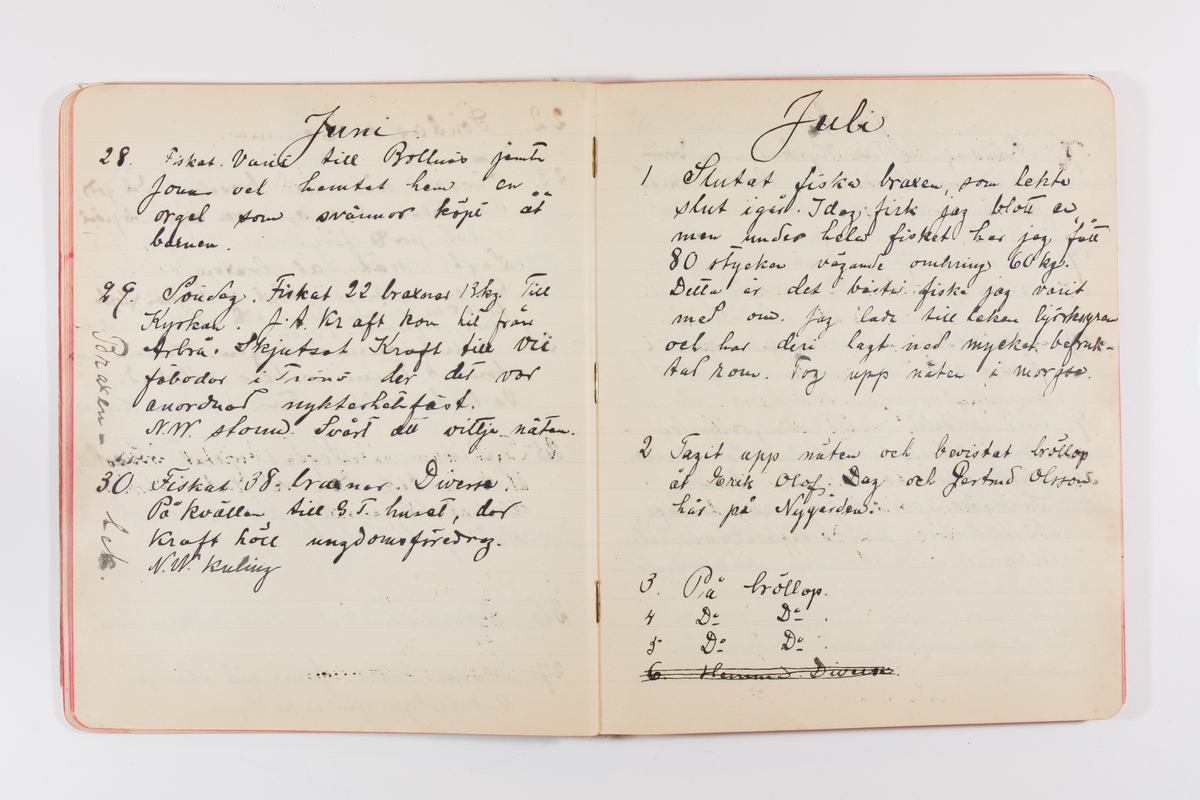 Juni
28. Fiskat. Varit till Bollnäs jemte
Jonas och hemtat hem en
orgel som svännor köpt åt
barnen.
29. Söndag. Fiskat 22 braxnar 13 kg. Till
Kyrkan. J. A. Kraft kom hit från
Arbrå. Skjutsat Kraft till
fäbodar i Trönö der det var
anordnad nykterhetsfäst.
N.W. storm. Svårt att vittja näten.
30. Fiskat 38 braxnar. Diverse.
På kvällen till G.T. huset, der
Kraft höll ungdomsföredrag.
N.W. kuling
Braxen-lek.
Juli
1 Slutat fiska braxen, som lekte
slut igår. Idag fick jag blott en
men under hela fisket har jag fått
80 stycken vägande omkring 60 kg.
Detta är det bästa fiske jag varit
med om. Jag lade till leken björkgren
och har deri lagt ned mycket befruk-
tad rom. Tog upp näten i morgse.
2 Tagit upp näten och bevistat bröllop
åt Erik Olof Dag och Gertrud Olsson
här på Nygården.
3. På bröllop.
4 Do Do .
5 Do Do .
6. Hemma. Diverse.